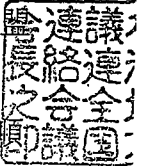 議連全国
連絡会議
會長之印